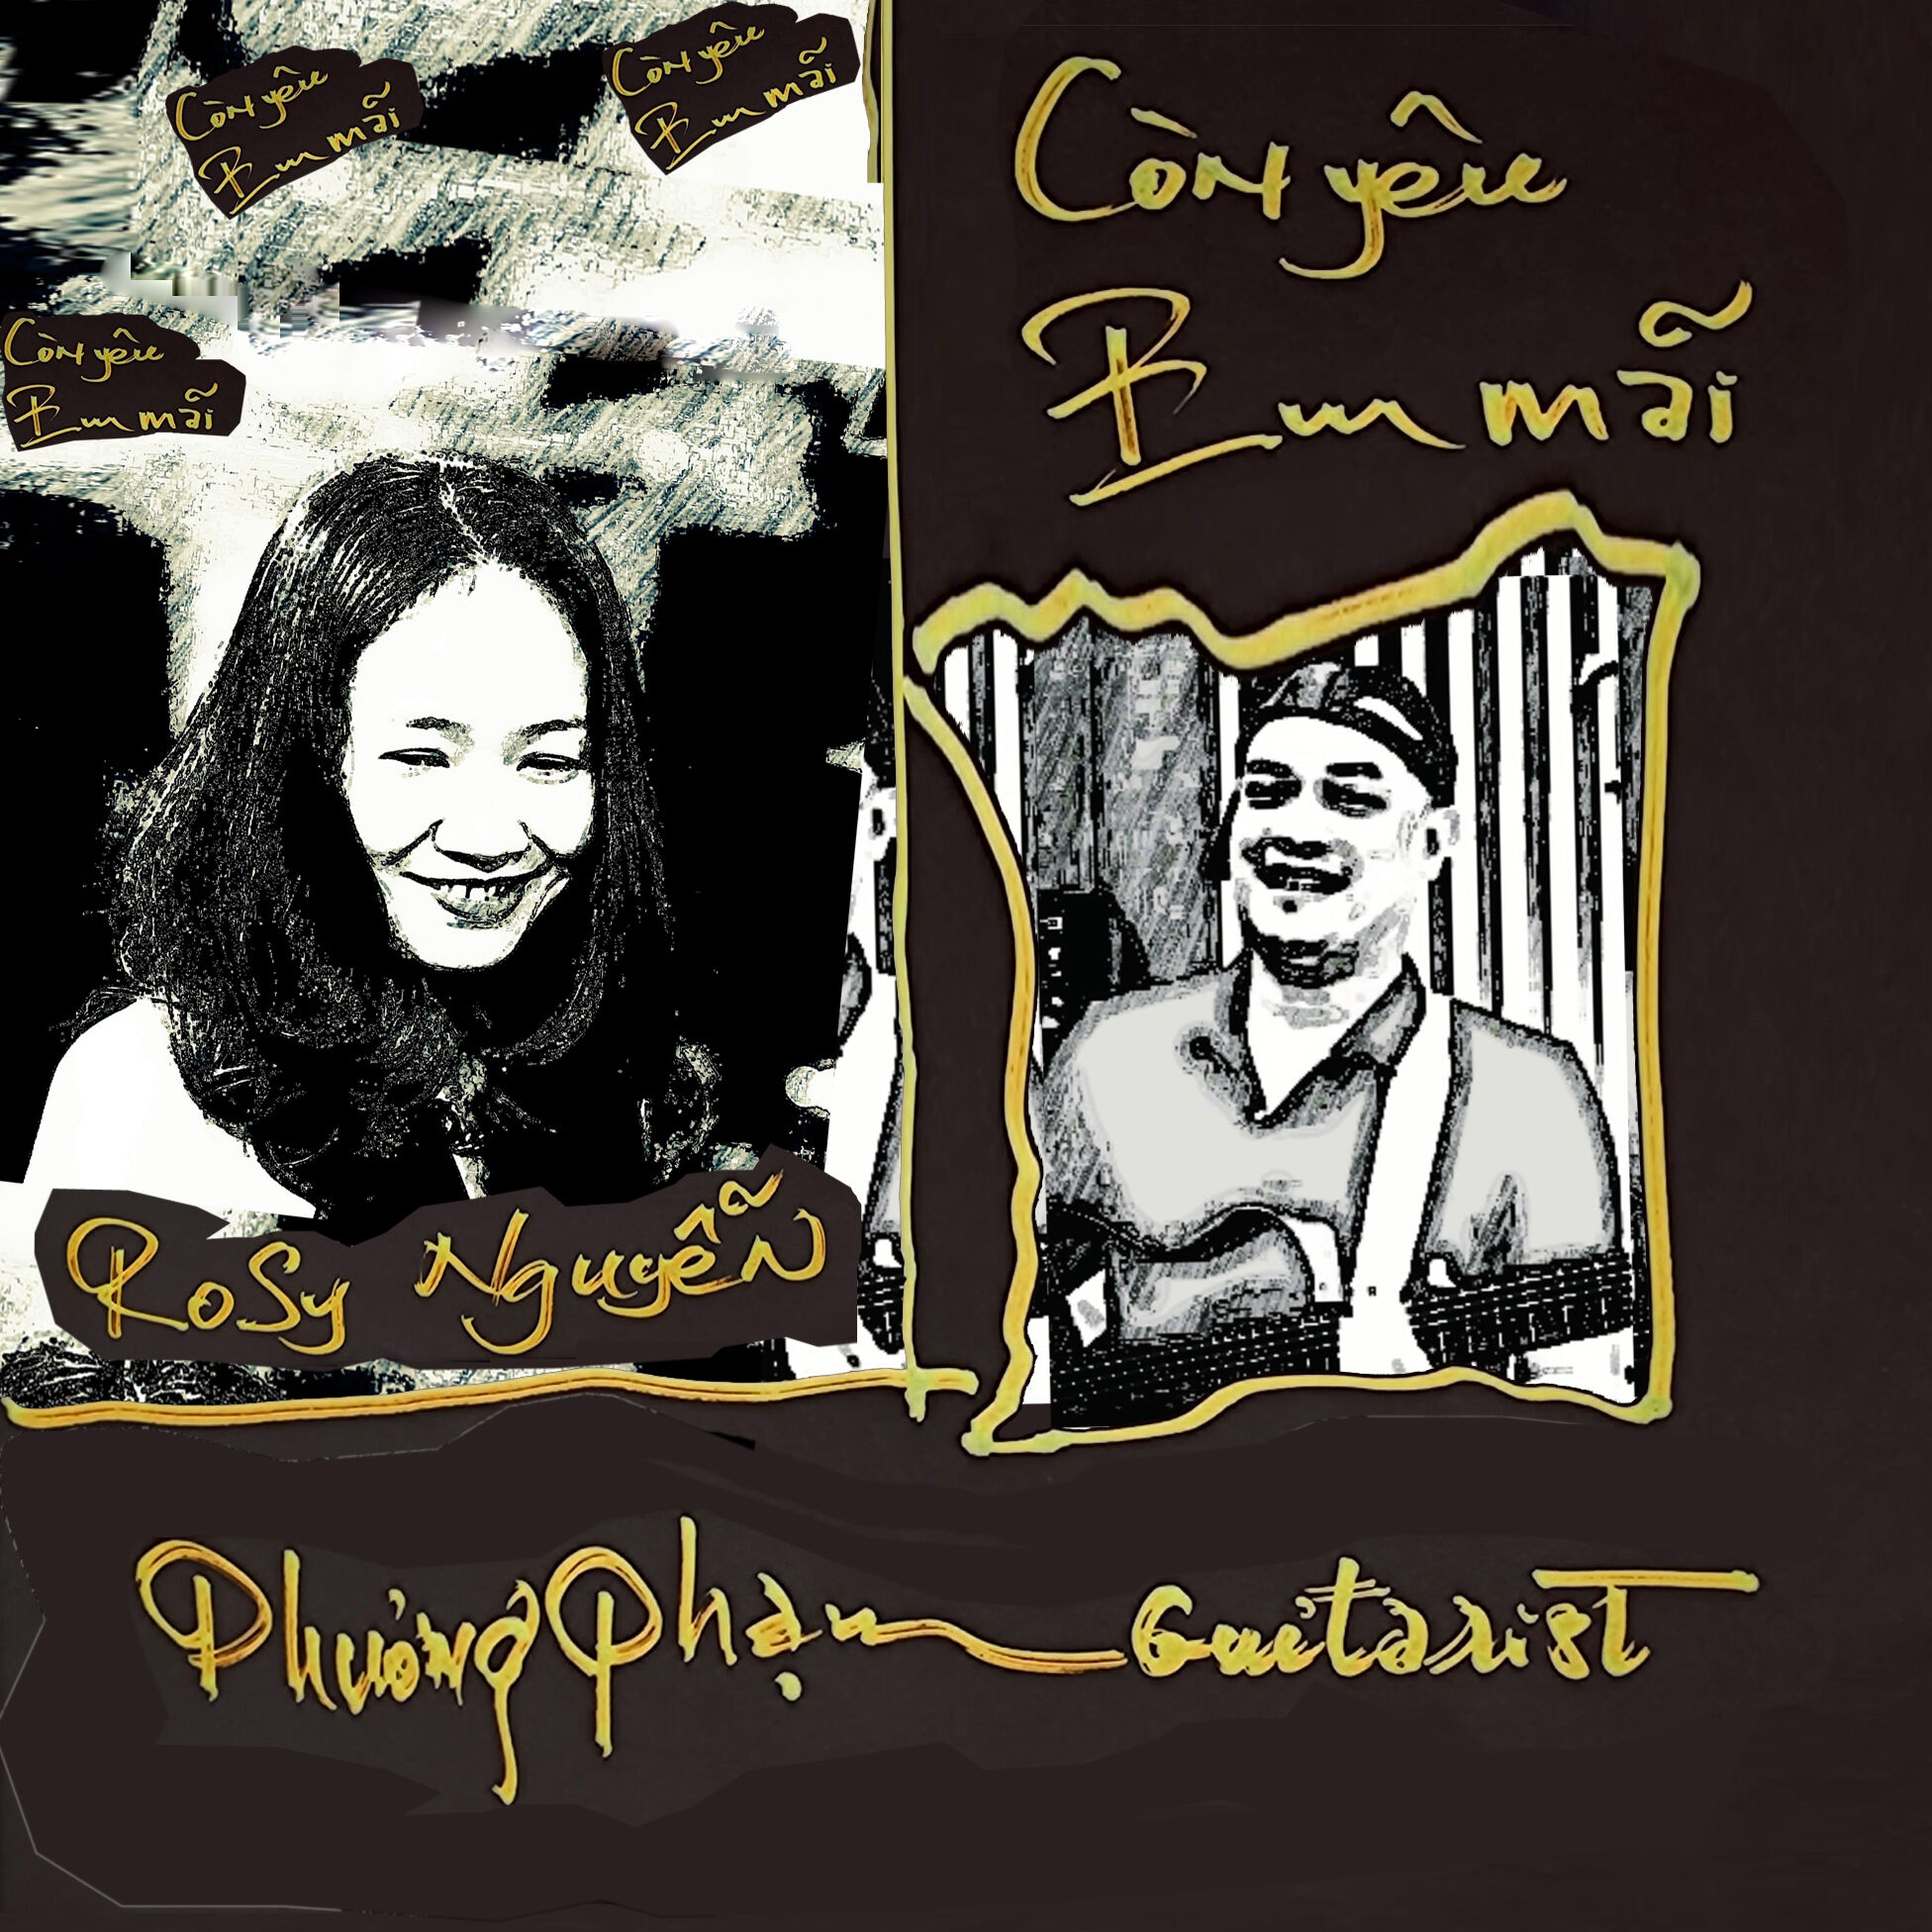 Còn yêu
Em mãi
Còn yêu
Em mãi
Còn yêu
Em mãi
Còn yêu
Em mãi
Rosy Nguyễn
Phưởng Phạm Guitarist